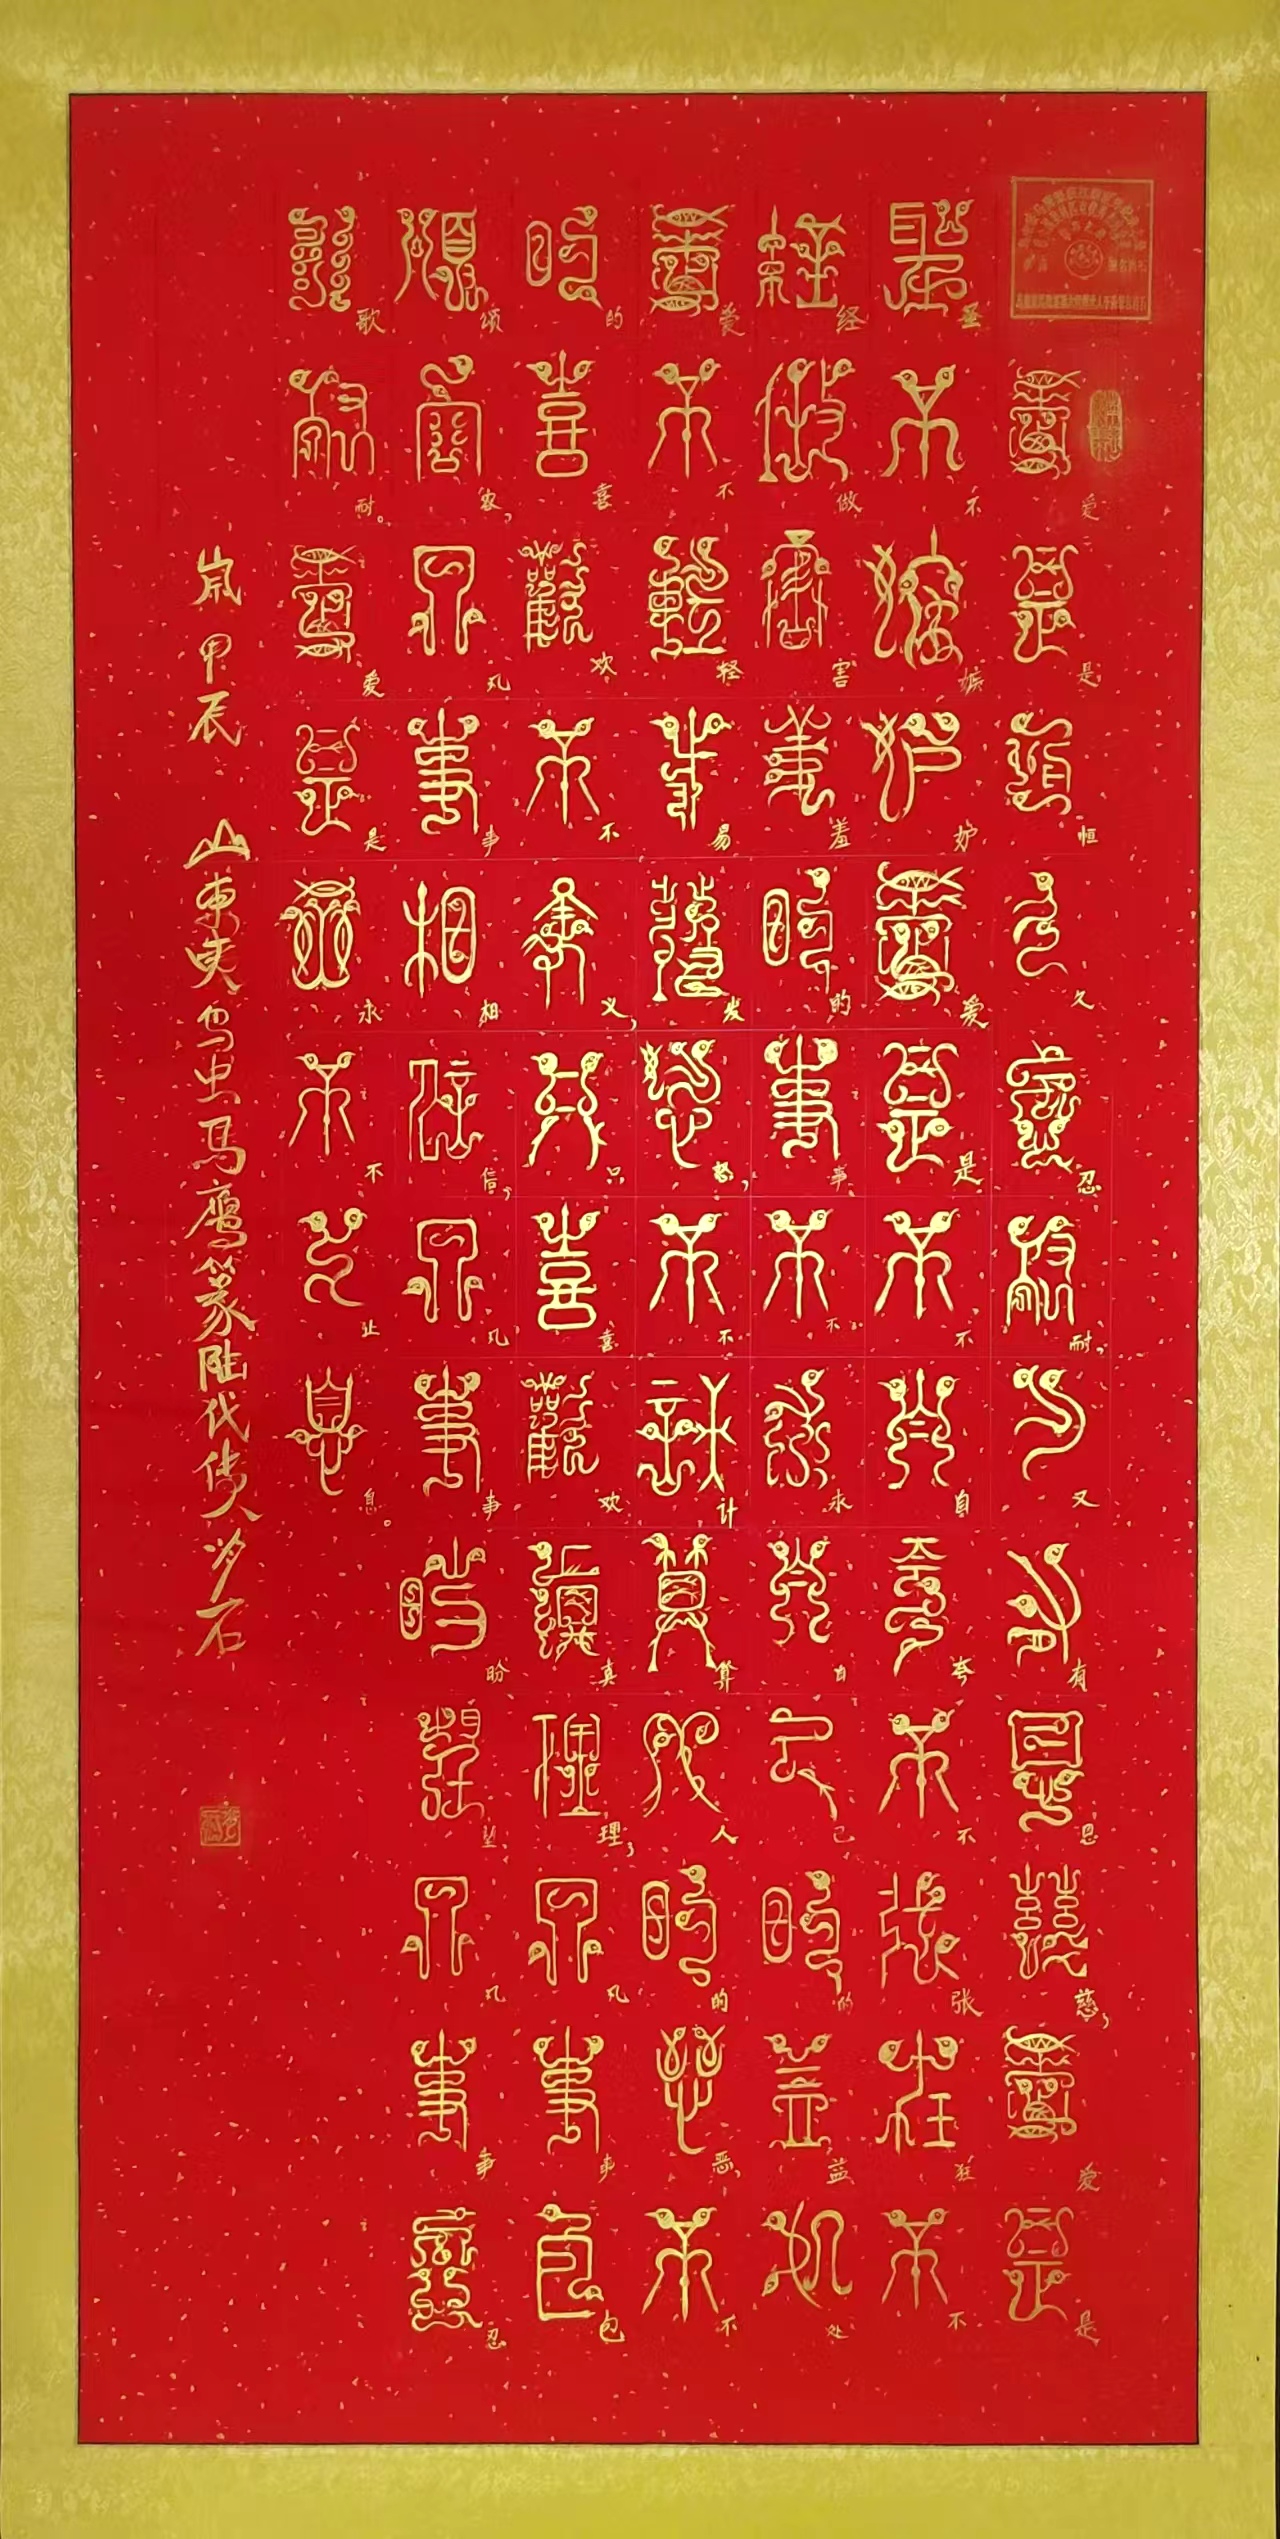 圣经爱的颂歌
爱是恒久忍耐,又有恩慈,爱是
不嫉妒爱是不自夸不张狂不
做害羞的事不。永自己的益处
不轻易发怒,不计算人的恶,不
喜欢不义,只喜欢真理,凡事包
容,凡事相信,凡事盼望凡事忍
耐。爱是永不止息。
甲辰 山东 鸟虫马鹰篆陆代传人 石